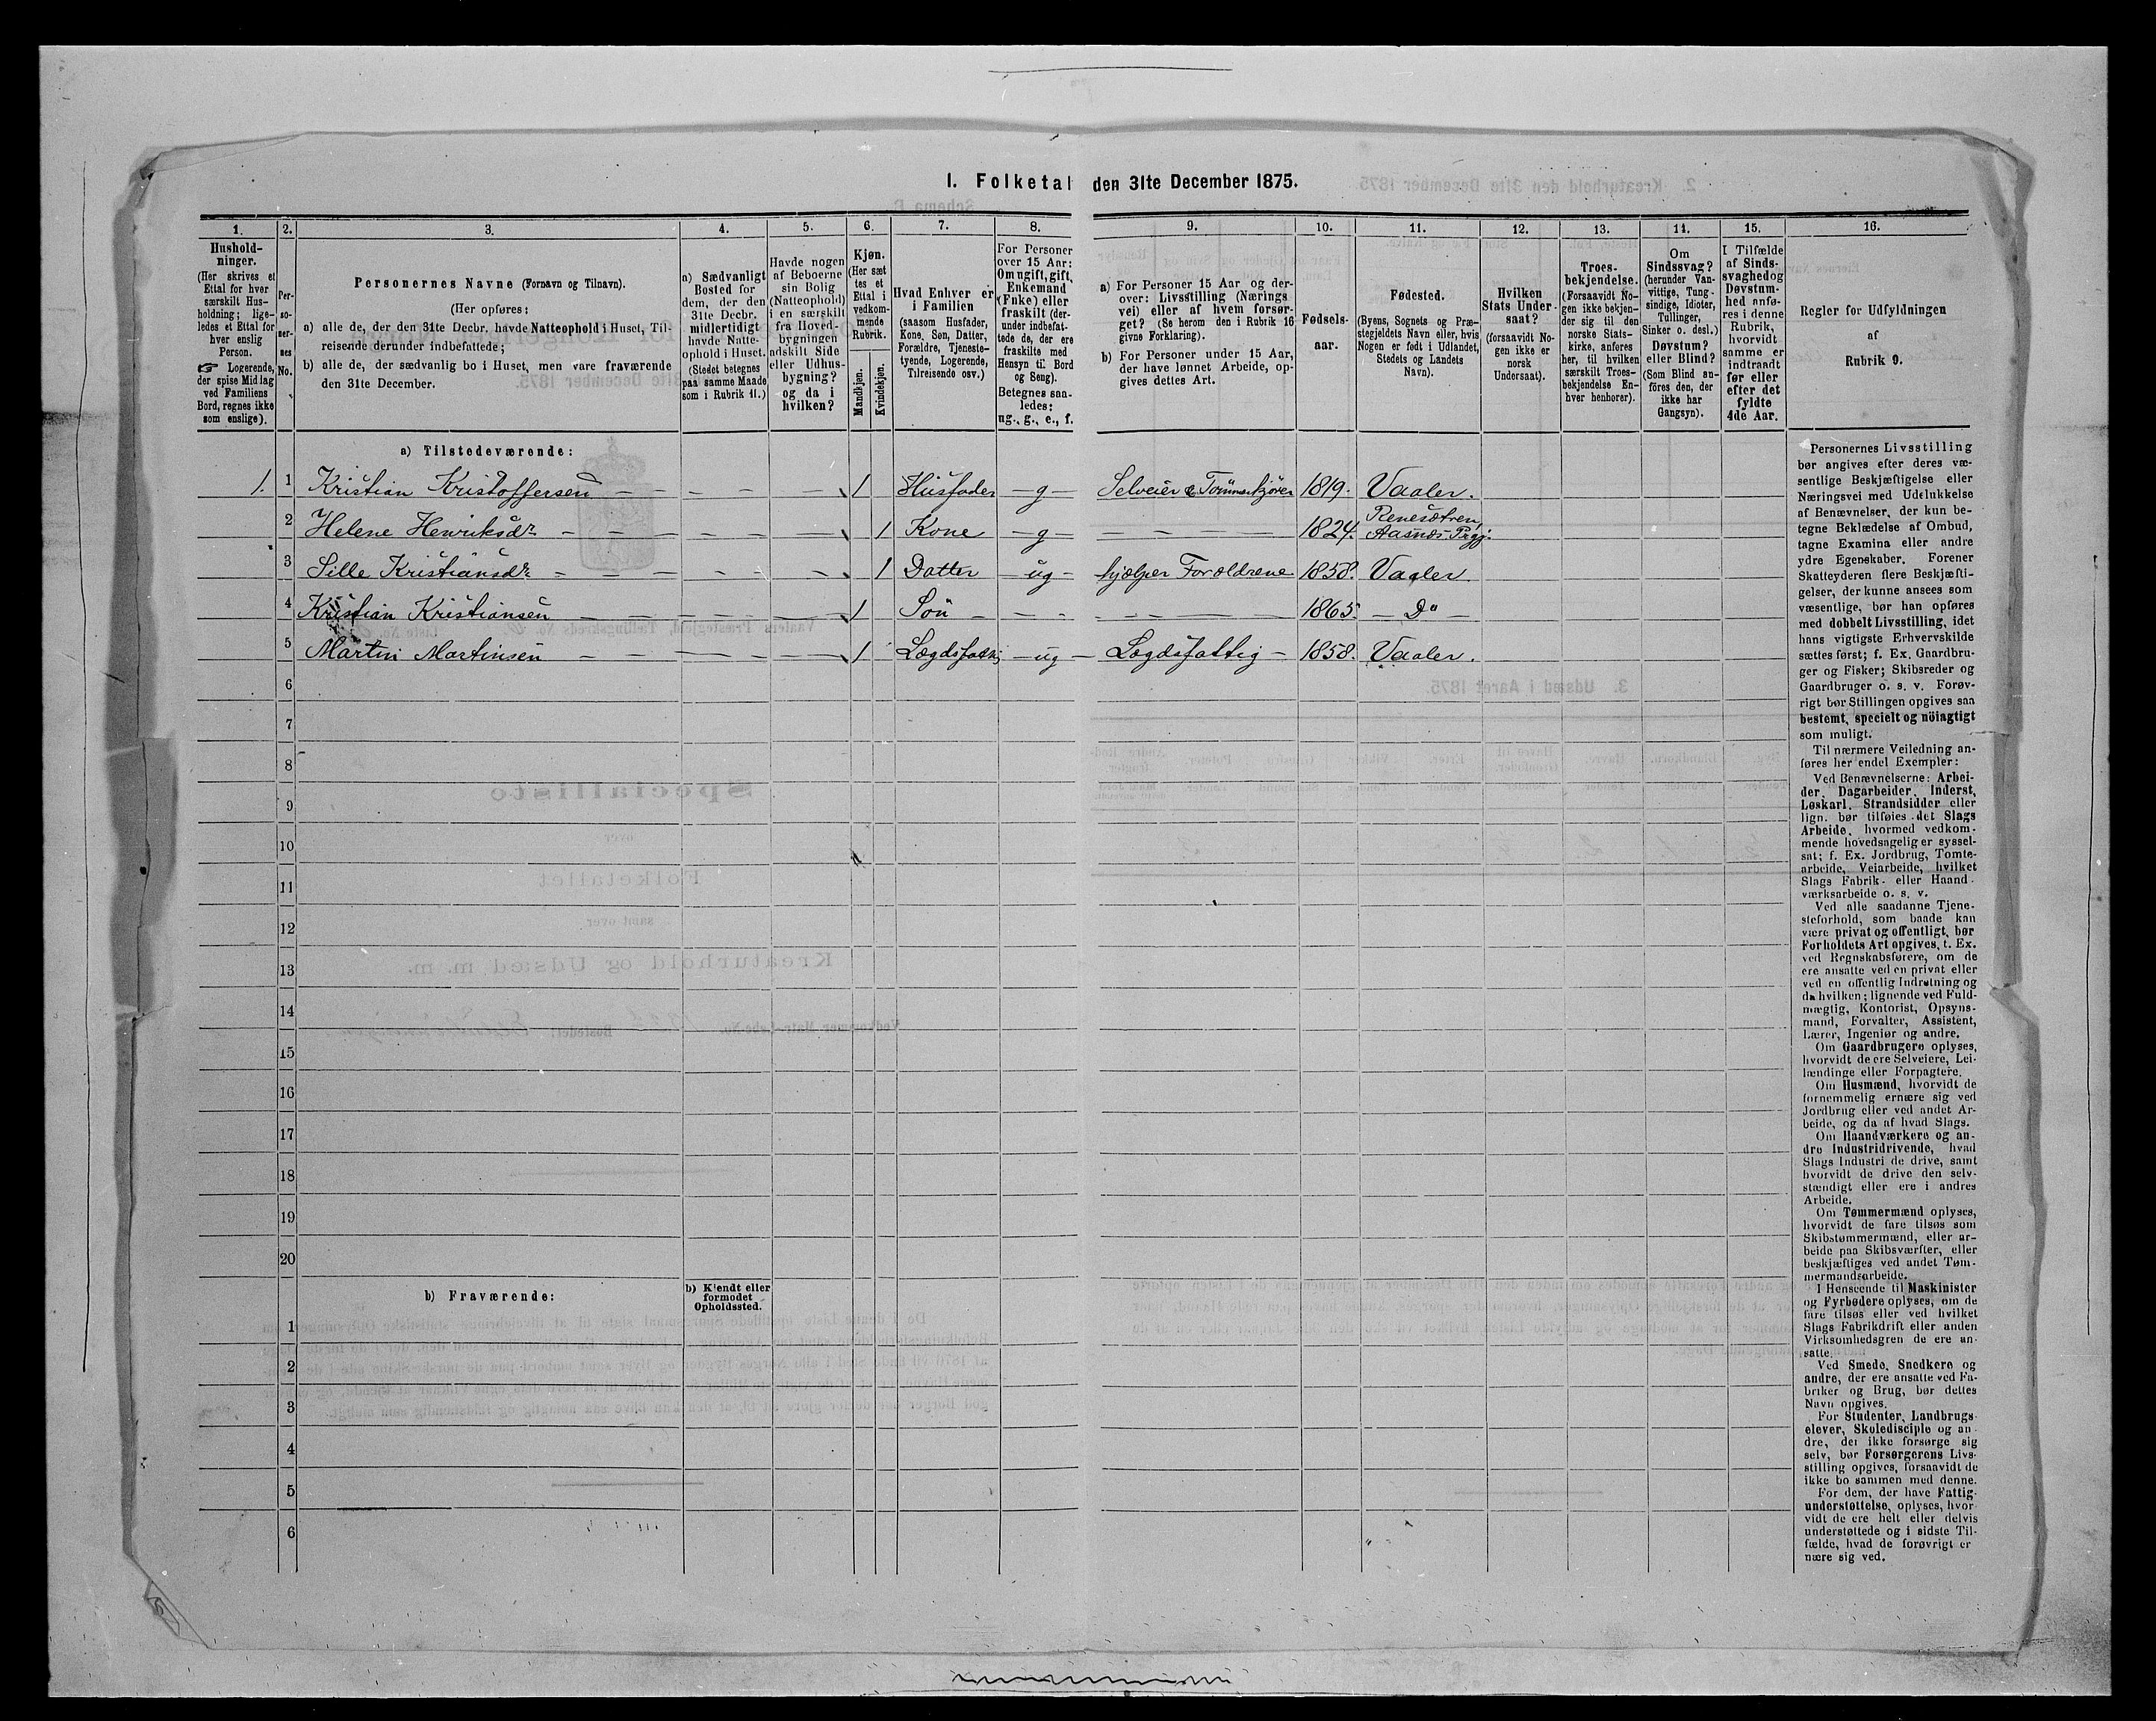 I. Folketal den 31te December 1875.
1.
2.
3.
4.
5.
6.
7.
8.
9.
10.
11.
12.
13.
14.
15.
16.
Hushold-
ninger.
(Her skrives et
Ettal for hver
særskilt Hus-
holdning; lige-
ledes et Ettal for
hver enslig
Person.
☞ Logerende,
der spise Middag
ved Familiens
Bord, regnes ikke
som enslige).
Per-
so-
ner-
nes
No.
Personernes Navne (Fornavn og Tilnavn).
(Her opføres:
a) alle de, der den 31te Decbr. havde Natteophold i Huset, Til-
reisende derunder indbefattede;
b) alle de, der sædvanlig bo i Huset, men vare fraværende
den 31te December.
a) Sædvanligt
Bosted for
dem, der den
31te Decbr.
midlertidigt
havde Natte-
ophold i Huset.
(Stedet betegnes
paa samme Maade
som i Rubrik 11.)
Havde nogen
af Beboerne
sin Bolig
(Natteophold)
i en særskilt
fra Hoved-
bygningen
adskilt Side
eller Udhus-
bygning?
og da i
hvilken?
Kjøn.
(Her sæt
tes et
Ettal i
vedkom-
mende
Rubrik.
Mandkjøn.
Kvindekjøn.
Hvad Enhver er
i Familien
(saasom Husfader,
Kone, Søn, Datter,
Forældre, Tjeneste-
tyende, Logerende,
Tilreisende osv.)
For Personer
over 15 Aar:
Om ugift, gift,
Enkemand
(Enke) eller
fraskilt (der-
under indbefat-
tede de, der ere
fraskilte med
Hensyn til Bord
og Seng).
Betegnes saa-
ledes:
ug., g., e., f.
a) For Personer 15 Aar og der-
over: Livsstilling (Nærings
vei) eller af hvem forsør-
get? (Se herom den i Rubrik 16
givne Forklaring).
b) For Personer under 15 Aar,
der have lønnet Arbeide, op-
gives dettes Art.
Fødsels-
aar.
Fødested.
(Byens, Sognets og Præ-
stegjeldets Navn eller, hvis
Nogen er født i Udlandet,
Stedets og Landets
Navn).
Hvilken
Stats Under-
saat?
(forsaavidt No-
gen ikke er
norsk
Undersaat).
Troes-
bekjendelse.
(Forsaavidt No-
gen ikke bekjen-
der sig til den
norske Stats-
kirke, anføres
her, til hvilken
særskilt Troes-
bekjendelse En-
hver henhører).
Om
Sindssvag?
(herunder Van-
vittige, Tung-
sindige, Idioter,
Tullinger,
Sinker o. desl.)
Døvstum?
eller Blind?
(Som Blind an-
føres den, der
ikke har
Gangsyn).
I Tilfælde
af Sinds-
svaghed og
Døvstum-
hed anfø-
res i denne
Rubrik,
hvorvidt
samme er
indtraadt
før eller
efter det
fyldte
4de Aar.
Regler for Udfyldningen
af
Rubrik 9.
a) Tilstedeværende:
1. 1 Kristian Kristoffersen — — — — — 1 Husfader — g — Selveier & Tømmerkjører 1819. Vaaler.
2 Helene Henriksdr — — — — — 1 Kone — g — — — — 1824. Renesætren, Aasnæs Prgj.
3 Sille Kristiansdr — — — — 1 Datter — ug — hjælper Forældrene 1858. Vaaler.
4 Kristian Kristiansen — — — — 1 Søn — — — — — 1865. — Do —
5 Martin Martinsen — — — — 1 Lægdsfattig — ug — Lægdsfattig — 1858. Vaaler.
6
7
8
9
10
11
12
13
14
15
16
17
18
19
20
b) Fraværende:
b) Kjendt eller
formodet
Opholdssted.
1
2
3
4
5
6
Personernes Livsstilling
bør angives efter deres væ-
sentlige Beskjæftigelse eller
Næringsvei med Udelukkelse
af Benævnelser, der kun be-
tegne Beklædelse af Ombud,
tagne Examina eller andre
ydre Egenskaber. Forener
Skatteyderen flere Beskjæfti-
gelser, der kunne ansees som
væsentlige, bør han opføres
med dobbelt Livsstilling, idet
hans vigtigste Erhvervskilde
sættes først; f. Ex. Gaardbru-
ger og Fisker; Skibsreder og
Gaardbruger o. s. v. Forøv-
rigt bør Stillingen opgives saa
bestemt, specielt og nöiagtigt
som muligt.
Til nærmere Veiledning an-
føres her endel Exempler:
Ved Benævnelserne: Arbei-
der, Dagarbeider, Inderst,
Løskarl, Strandsidder eller
lign. bør tilføies det Slags
Arbeide, hvormed vedkom-
mende hovedsagelig er syssel-
sat; f. Ex. Jordbrug, Tomte-
arbeide, Veiarbeide, hvilket
Slags Fabrik- eller Haand-
værksarbeide o. s. v.
Ved alle saadanne Tjene-
steforhold, som baade kan
være privat og offentligt, bør
Forholdets Art opgives, t. Ex.
ved Regnskabsførere, om de
ere ansatte ved en privat eller
ved en offentlig Indretning og
da hvilken; lignende ved Fuld-
mægtig, Kontorist, Opsyns-
mand, Forvalter, Assistent,
Lærer, Ingeniør og andre.
Om Gaardbrugere oplyses,
hvorvidt de ere Selveiere, Lei-
lændinge eller Forpagtere.
Om Husmænd, hvorvidt de
fornemmelig ernære sig ved
Jordbrug eller ved andet Ar-
beide, og da af hvad Slags.
Om Haandværkere og an-
dre Industridrivende, hvad
Slags Industri de drive, samt
hvorvidt de drive den selv-
stændigt eller ere i andres
Arbeide.
Om Tømmermænd oplyses,
hvorvidt de fare tilsøs som
Skibstømmermænd, eller ar-
beide paa Skibsværfter, eller
beskjæftiges ved andet Tøm-
mermandsarbeide.
I Henseende til Maskinister
og Fyrbødere oplyses, om de
fare tilsøs eller ved hvilket
Slags Fabrikdrift eller anden
Virksomhedsgren de ere an-
satte.
Ved Smede, Snedkere og
andre, der ere ansatte ved Fa-
briker og Brug, bør dettes
Navn opgives.
For Studenter, Landbrugs-
elever, Skoledisciple og an-
dre, der ikke forsørge sig
selv, bør Forsørgerens Livs-
stilling opgives, forsaavidt de
ikke bo sammen med denne.
For dem, der have Fattig-
understøttelse, oplyses, hvor-
vidt de ere helt eller delvis
understøttede og i sidste Til-
fælde, hvad de forøvrigt er
nære sig ved.